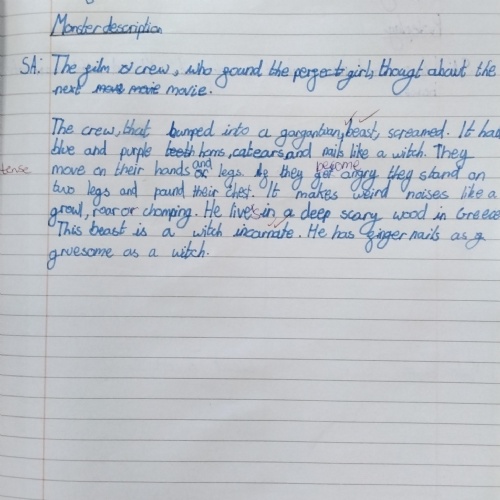 Monster description
SA: The film crew, who found the perfect girl, thougt about the
next movie.
The crew, that bumped into a gargantuan, beast, screamed. It had
blue and purple teeth horns, cat ears, and nails like a witch. They
tense move on their hands and legs. If they become angry they stand on
two legs and pound their chest. It makes weird noises like a
growl, roar or chomping. He lives in a deep scary wood in Greece
This beast is a witch incarnate. He has finger nails as
gruesome as a witch.